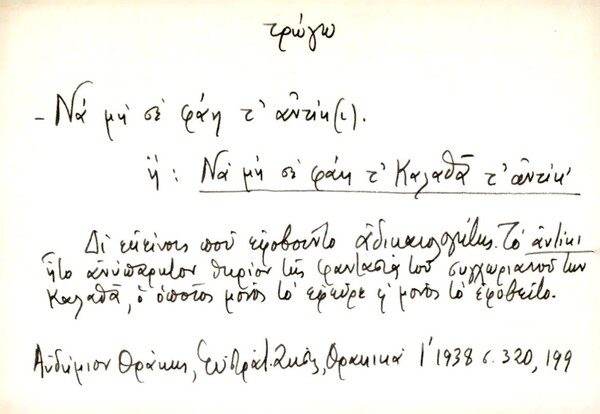 τρώγω
- Νά μή σέ φάη τ' ἀντίκ(ι).
ἤ: Νά μή σέ φάη τ' Καλαθᾶ τ' ἀντίκ'
Δι' ἐκείνους πού ἐφοβοῦντο ἀδικαιολογήτως. Τό ἀντίκι
ἦτο ἀνύπαρκτον θηρίον τῆς φαντασίας τοῦ συγχωριανοῦ των
Καλαθᾶ, ὁ ὁποῖος μόνος τό ἐφεῦρε κ' μόνος τό ἐφοβεῖτο.
Αὐδήμιον Θράκης, Θρακικά Ι' 1938 σ. 320, 199